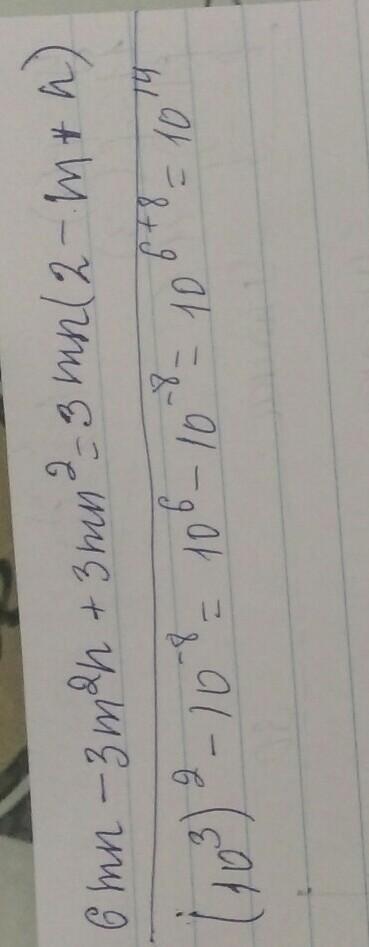 6mn - 3m²n + 3mn² = 3mn(2 - m + n)
(10³)² - 10⁻⁸ = 10⁶ - 10⁻⁸ = 10⁶⁺⁸ = 10¹⁴